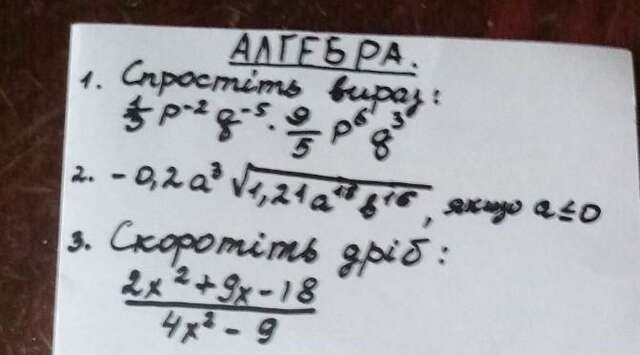 АЛГЕБРА.
1. Спростіть вираз:
1/3 p⁻² q⁻⁵ · 9/5 p⁶ q³
2. - 0,2a³ √1,21a¹⁸b¹⁶, якщо a ≤ 0
3. Скоротіть дріб:
2x² + 9x - 18
4x² - 9